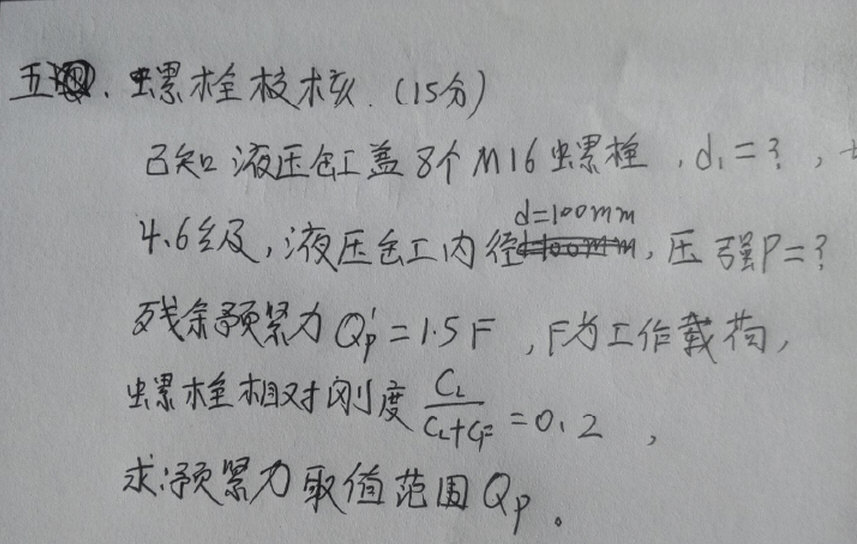 五、螺栓校核.(15分)
已知液压缸盖8个M16螺栓,d₁=?,
4.6级,液压缸内径d=100mm,压强P=?
残余预紧力Qp'=1.5F,F为工作载荷,
螺栓相对刚度 C_L/(C_L+C_F)=0.2,
求:预紧力取值范围Qp。